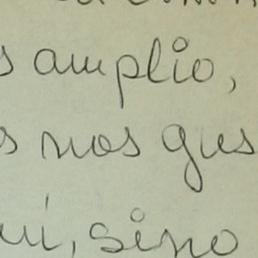 s amplio,
s nos gus
uí, sino